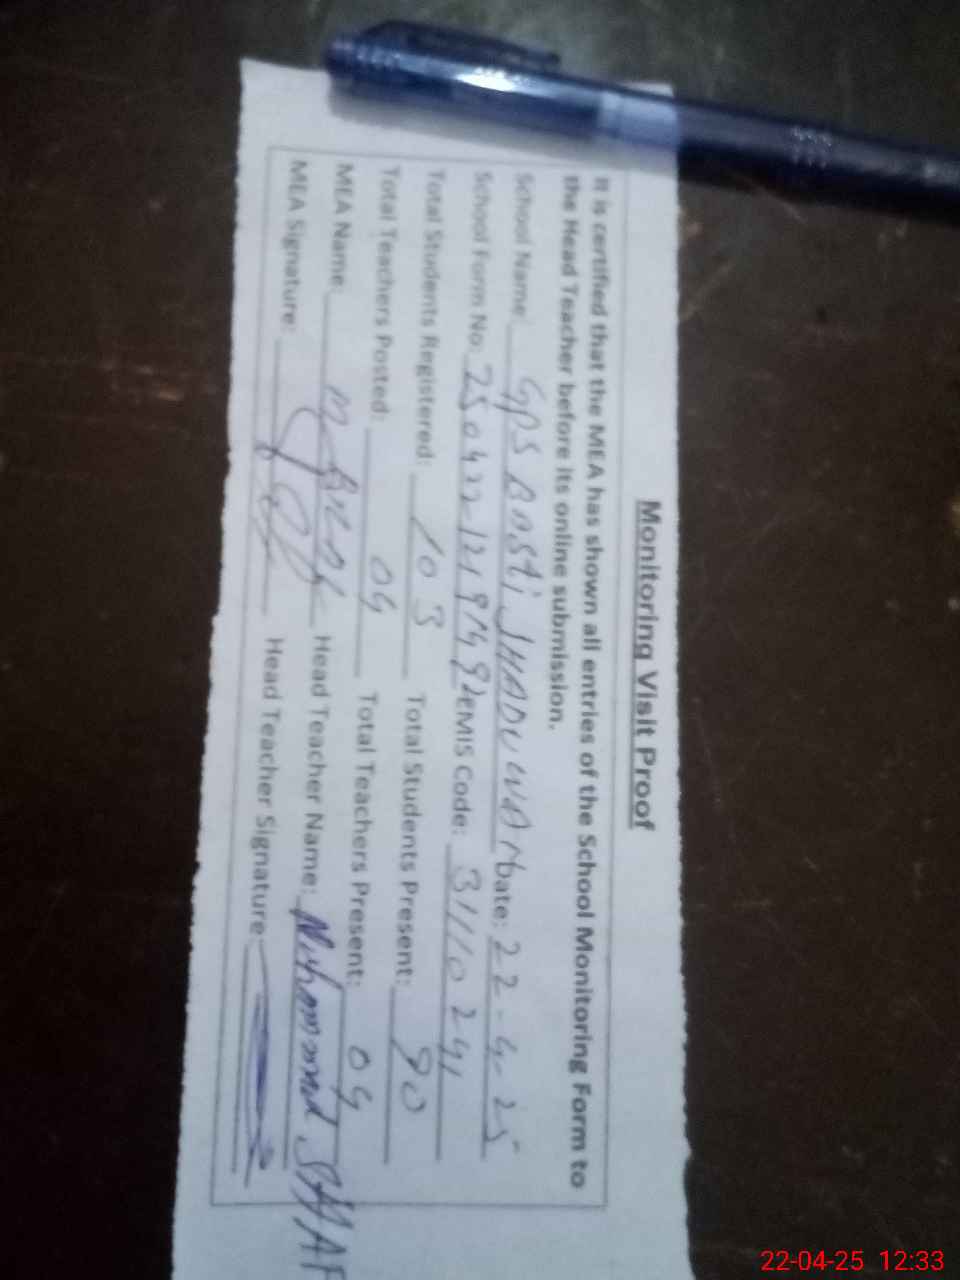 Monitoring Visit Proof
It is certified that the MEA has shown all entries of the School Monitoring Form to
the Head Teacher before its online submission.
School Name GPS Basti Date: 22-4-25
School Form No: EMIS Code: 31110241
Total Students Registered: 103 Total Students Present: 90
Total Teachers Posted: 04 Total Teachers Present: 04
MEA Name: Head Teacher Name: Muhammad
MEA Signature: Head Teacher Signature:
22-04-25 12:33